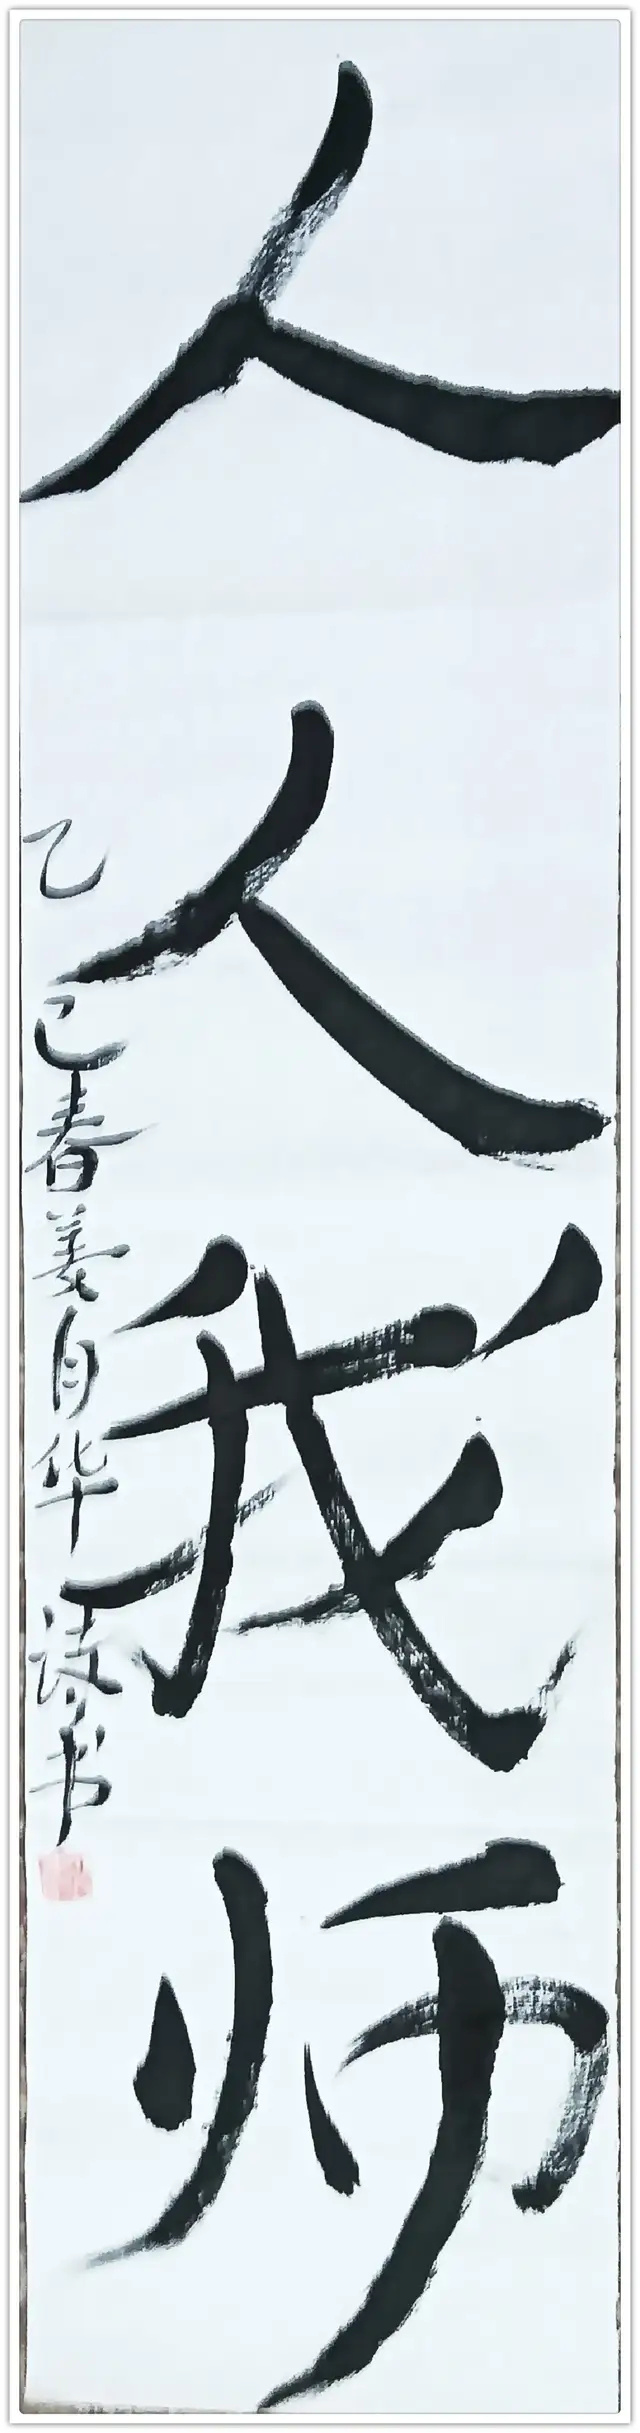 人人我师
乙巳春姜自华诗书